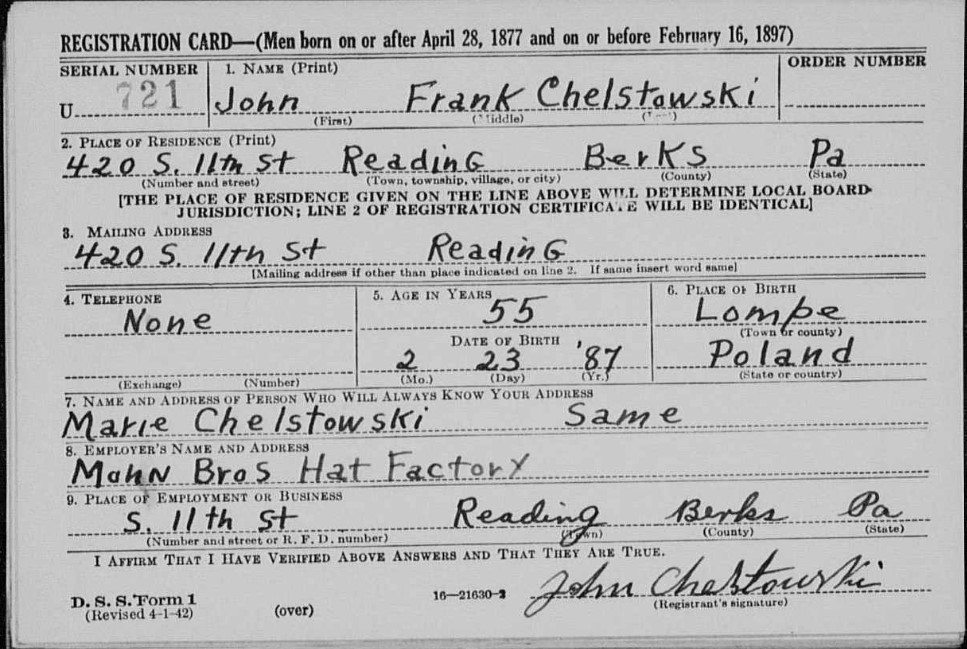 REGISTRATION CARD—(Men born on or after April 28, 1877 and on or before February 16, 1897)
SERIAL NUMBER 1. NAME (Print) ORDER NUMBER
U 721 John Frank Chelstowski
(First) (Middle) (Last)
2. PLACE OF RESIDENCE (Print)
420 S. 11th St Reading Berks Pa
(Number and street) (Town, township, village, or city) (County) (State)
[THE PLACE OF RESIDENCE GIVEN ON THE LINE ABOVE WILL DETERMINE LOCAL BOARD
JURISDICTION; LINE 2 OF REGISTRATION CERTIFICATE WILL BE IDENTICAL]
3. MAILING ADDRESS
420 S. 11th St Reading
[Mailing address if other than place indicated on line 2. If same insert word same]
4. TELEPHONE 5. AGE IN YEARS 6. PLACE OF BIRTH
None 55 Lompe
(Town or county)
DATE OF BIRTH
2 23 '87 Poland
(Exchange) (Number) (Mo.) (Day) (Yr.) (State or country)
7. NAME AND ADDRESS OF PERSON WHO WILL ALWAYS KNOW YOUR ADDRESS
Marie Chelstowski Same
8. EMPLOYER'S NAME AND ADDRESS
Mohn Bros Hat Factory
9. PLACE OF EMPLOYMENT OR BUSINESS
S. 11th St Reading Berks Pa
(Number and street or R. F. D. number) (Town) (County) (State)
I AFFIRM THAT I HAVE VERIFIED ABOVE ANSWERS AND THAT THEY ARE TRUE.
John Chelstowski
D. S. S. Form 1 16—21630-2 (Registrant's signature)
(Revised 4-1-42) (over)